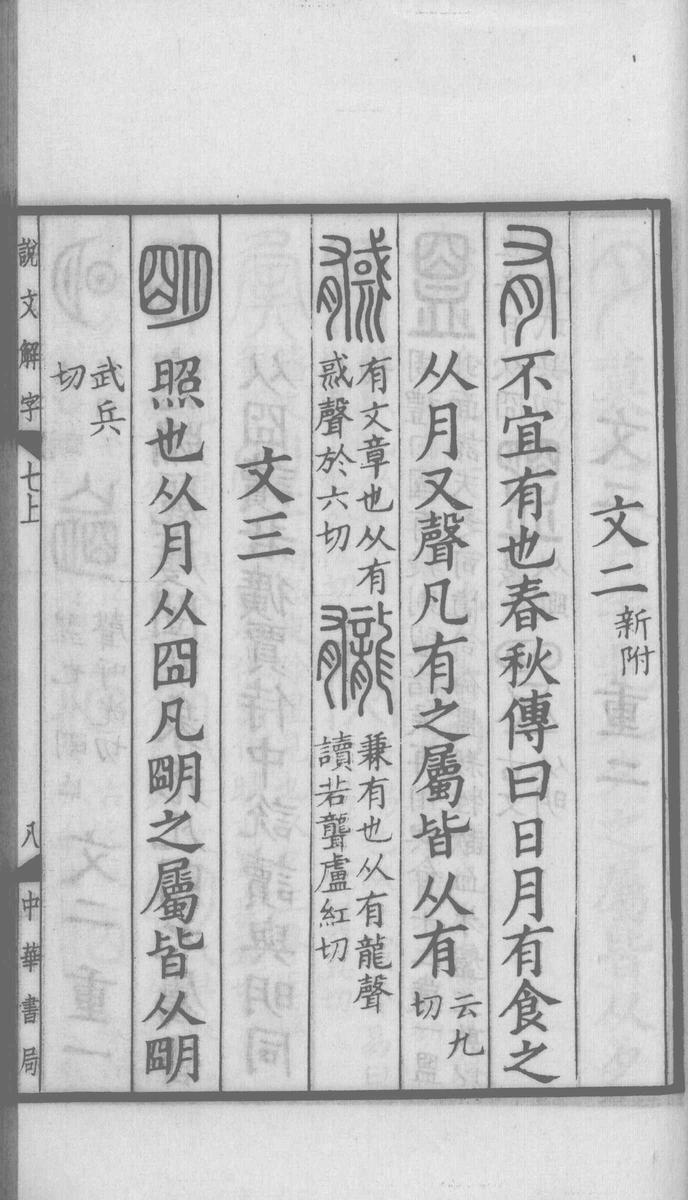 文二新附
有不宜有也春秋傳曰日月有食之
从月又聲凡有之屬皆从有云九切
𪚬有文章也从有𢒠聲於六切 龓兼有也从有龍聲讀若聾盧紅切
文三
朙照也从月从囧凡朙之屬皆从朙
武兵切
說文解字 七上 八 中華書局